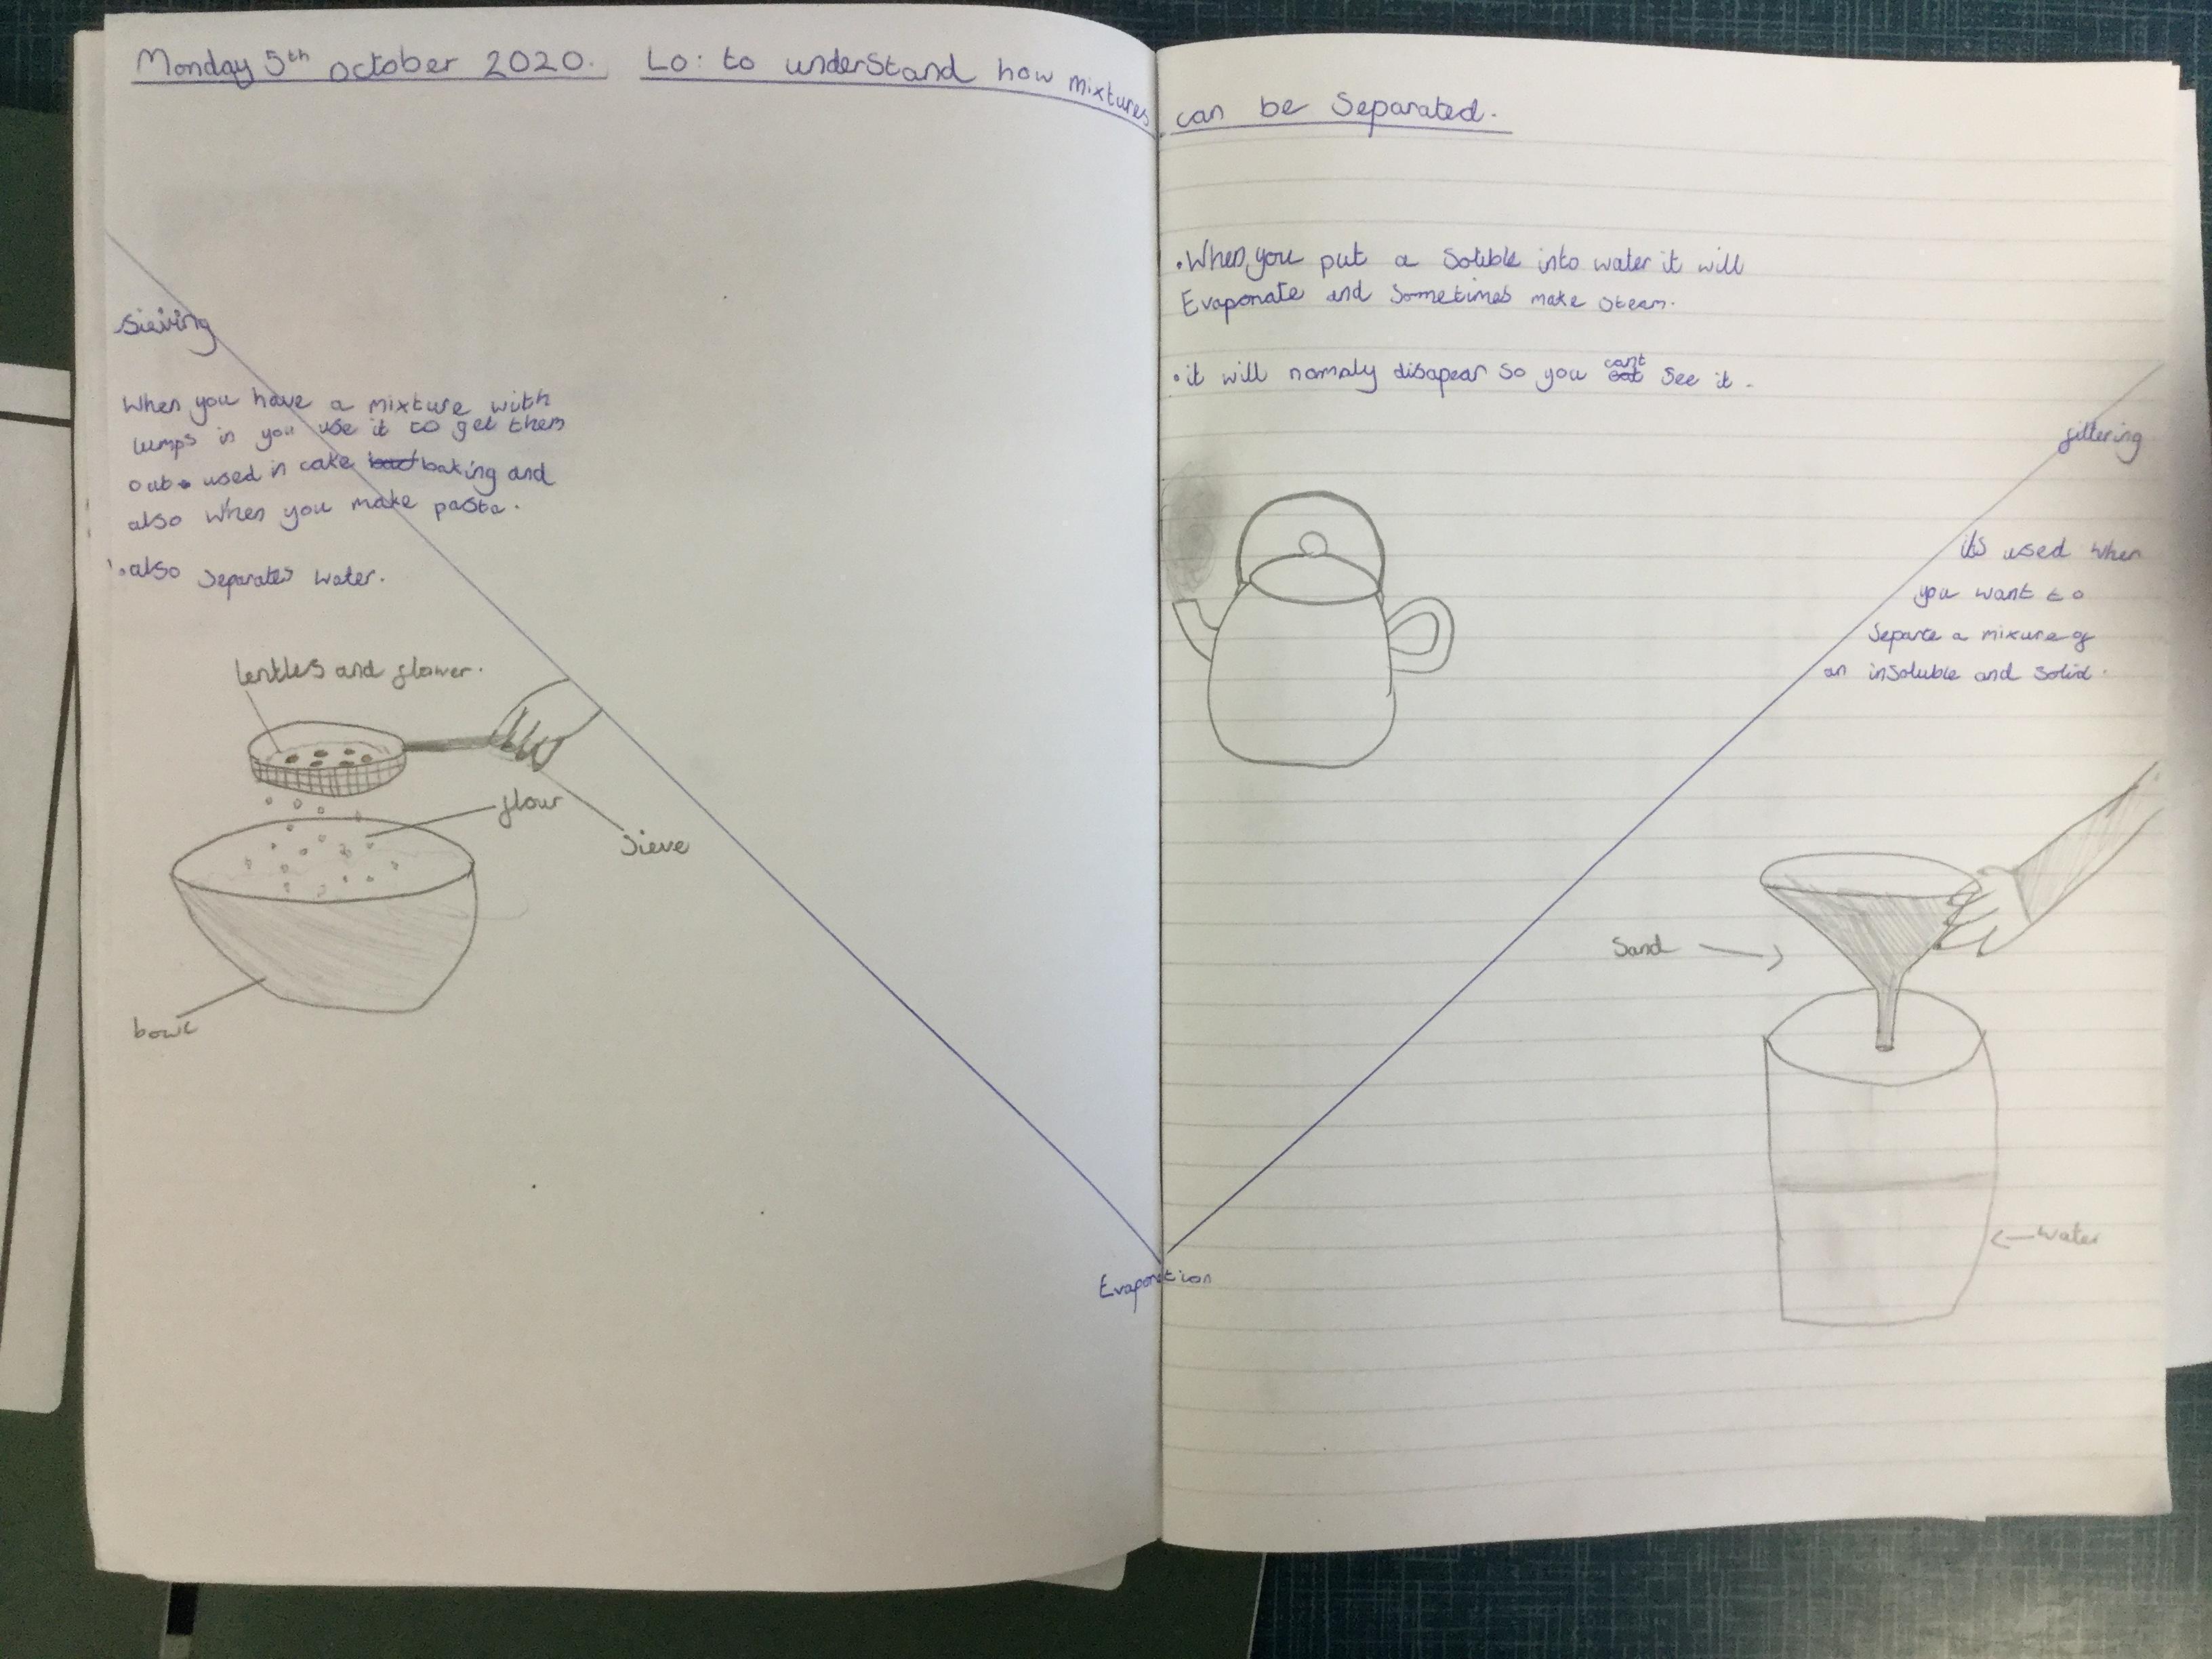 Monday 5th october 2020. Lo: to understand how mixtures can be Separated.
Sieving
When you have a mixture with
lumps in you use it to get them
out. used in cake baking and
also when you make pasta.
• also Separates water.
lentles and flower.
flour
Sieve
bowl
• When you put a Soluble into water it will
Evaporate and Sometimes make steam.
• it will normaly disapear so you cant see it.
Evaporation
filtering
its used when
you want to
Separte a mixure of
an insoluble and solid.
Sand
water